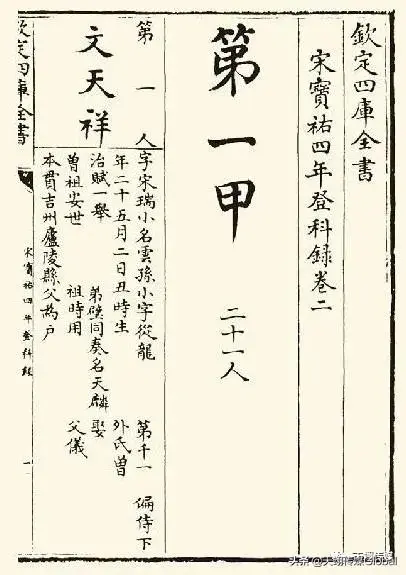 欽定四庫全書
宋寶祐四年登科錄卷二
第一甲 二十一人
第一人
文天祥
字宋瑞小名雲孫小字從龍 第千一 偏侍下
年二十五月二日丑時生 外氏曾
治賦一舉 弟璧同奏名天麟 娶
曾祖安世 祖時用 父儀
本貫吉州廬陵縣父為户
欽定四庫全書
宋寶祐四年登科録
一
头条 @
Global